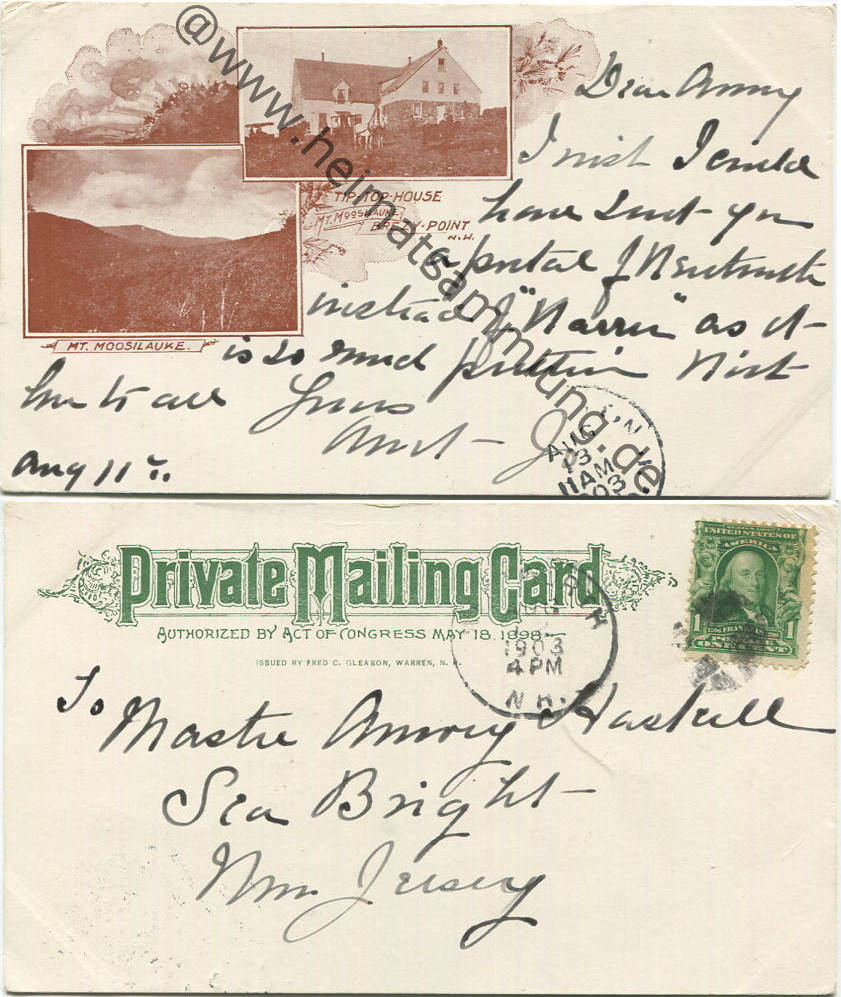 @www.heimatsammlung.de
TIP-TOP-HOUSE
MT. MOOSILAUKE
BREZY-POINT
N.H.
MT. MOOSILAUKE.
Dear Amory
I wish I could
have sent you
a postal of
instead of "Warren" as it
is so much prettier
love to all Yours
Aunt J
Aug 11th
AUG
13
11 AM
03
Private Mailing Card
AUTHORIZED BY ACT OF CONGRESS MAY 18, 1898
ISSUED BY FRED C. GLEASON, WARREN, N. H.
1903
4 PM
N.H.
UNITED STATES OF
AMERICA
1 1
POSTAGE
ONE CENT
To
Master Amory Haskell
Sea Bright
New Jersey